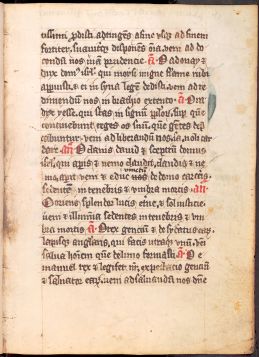 tissimi prodisti adtingens a fine usq; ad finem
fortiter suauiter disponens oīa. ueni ad do
cendū nos uiam prudencie. a O adonay &
dux dom' isrl. qui moysi in igne flame rubi
apparuisti. & ei in syna legem dedisti. ueni ad re
dimendū nos in brachio extento. a O ra
dix yesse. qui stas in signū pplor. sup quē
continebunt reges os suū. quē gentes dep
cabuntur. ueni ad liberandū nos. iā noli tar
dare. an O clauis dauid & sceptrum domus
isrl. qui aperis & nemo claudit. claudis & ne
mo aperit. ueni & educ uinctū de domo carceris
sedentē in tenebris & umbra mortis. an
Oriens splendor lucis etne. & sol iusticie
ueni & illumina sedentes in tenebris & um
bra mortis. a O rex genciū & desyderatus ear.
lapisq; anglaris. qui facis utraq; unū. ueni
salua hoīem quē de limo formasti. a O e
manuel rex & legifer nr̄. expectacio genciū
& saluator ear. ueni ad saluandū nos dne